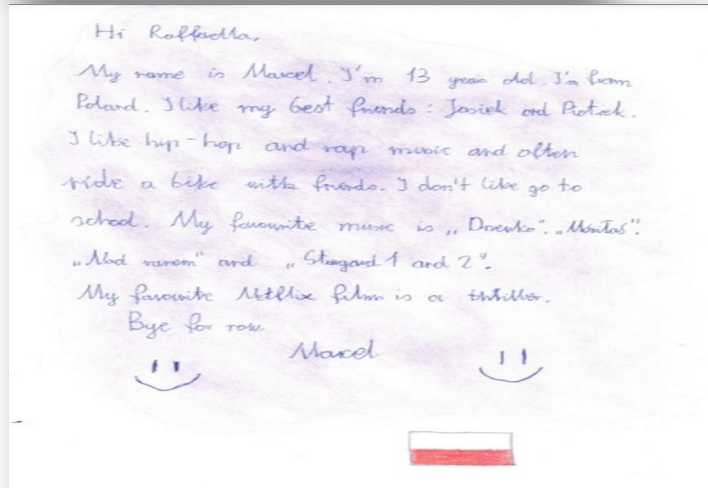 Hi Raffaella,
My name is Marcel. I'm 13 years old. I'm from
Poland. I like my best friends: Jasiek and Piotrek.
I like hip-hop and rap music and often
ride a bike with friends. I don't like go to
school. My favourite music is „ ", „ ".
„ " and „Stargard 1 and 2".
My favourite Netflix film is a thriller.
Bye for now.
Marcel